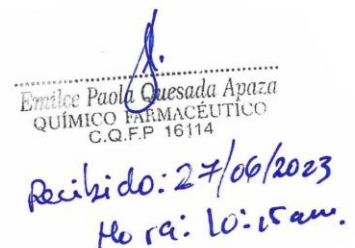 Emilce Paola Quesada Apaza
QUÍMICO FARMACÉUTICO
C.Q.F.P 16114
Recibido: 27/06/2023
Hora: 10:15am.